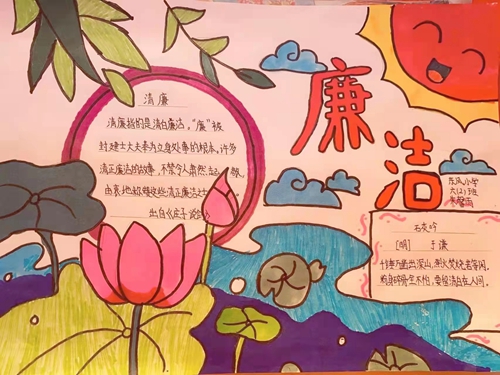 清廉
清廉指的是清白廉洁，“廉”被
封建士大夫奉为立身处事的根本，许多
清正廉洁的故事，不禁令人肃然起敬，
由衷地 这些清正廉洁之士
出自《庄子 说剑
廉
洁
东风小学
班
石灰吟
[明] 于谦
千锤万凿出深山，烈火焚烧若等闲。
粉身碎骨全不怕，要留清白在人间。